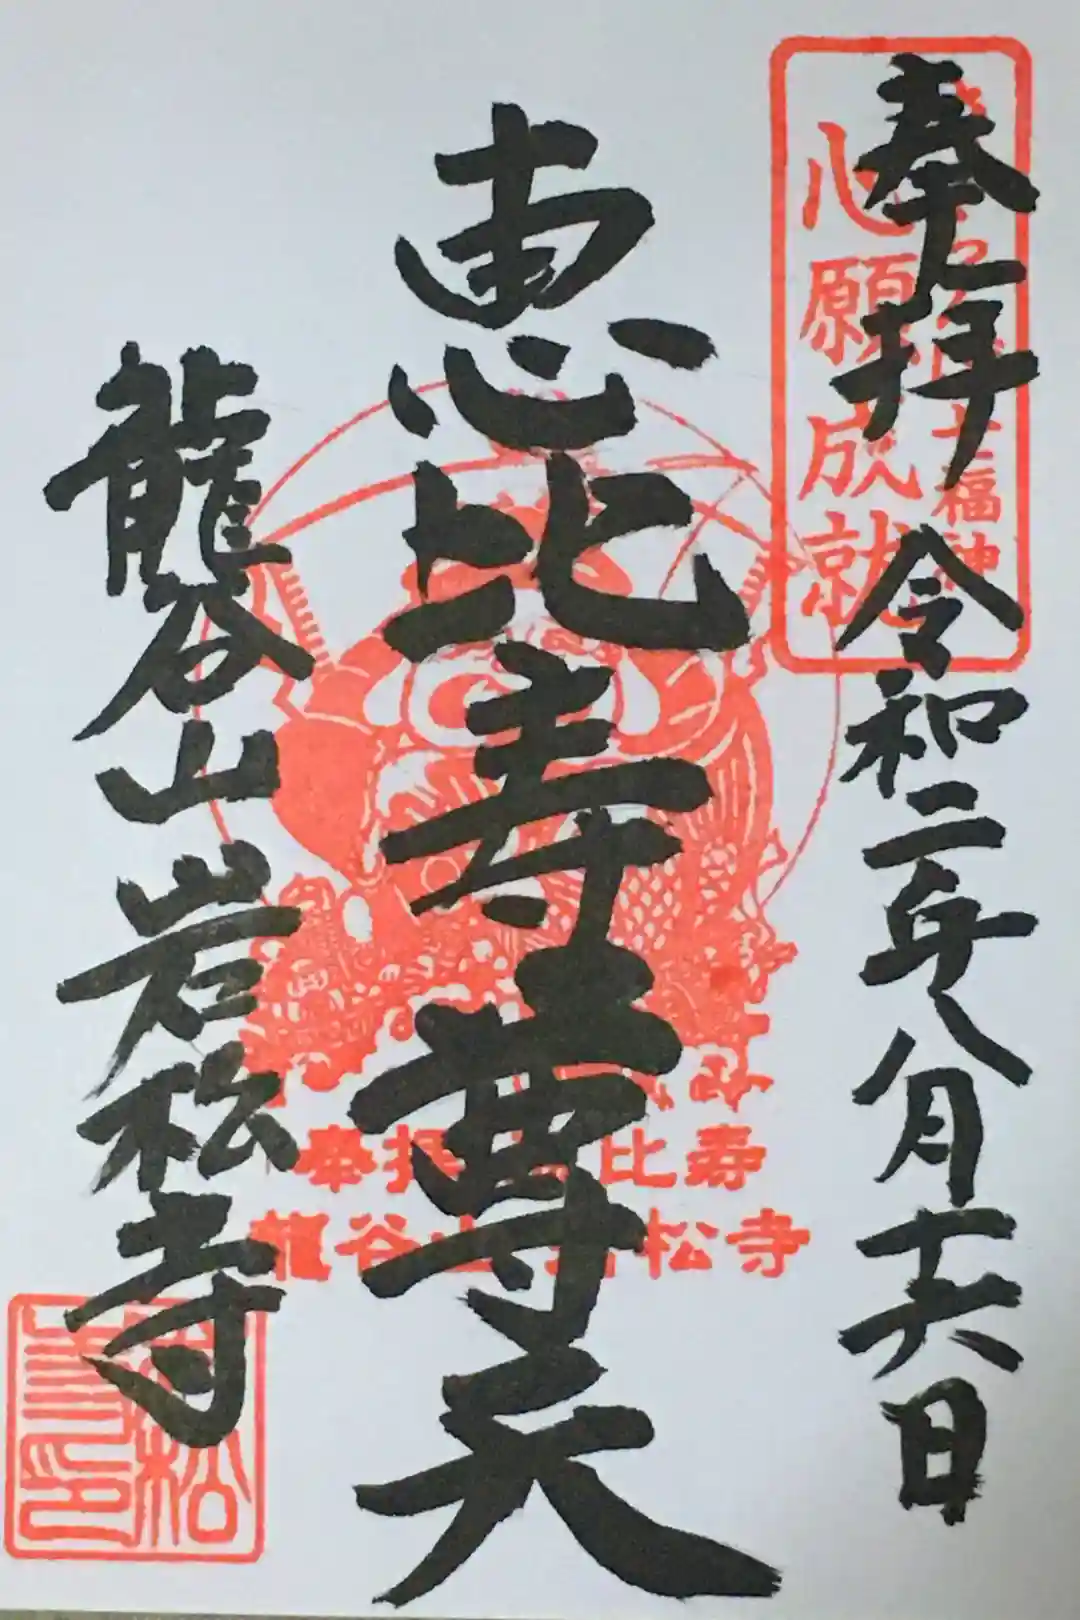 奉拝 令和二年八月十六日
七福神
心願成就
恵比寿尊天
奉拝 恵比寿
龍谷山 岩松寺
龍谷山 岩松寺
岩松寺印